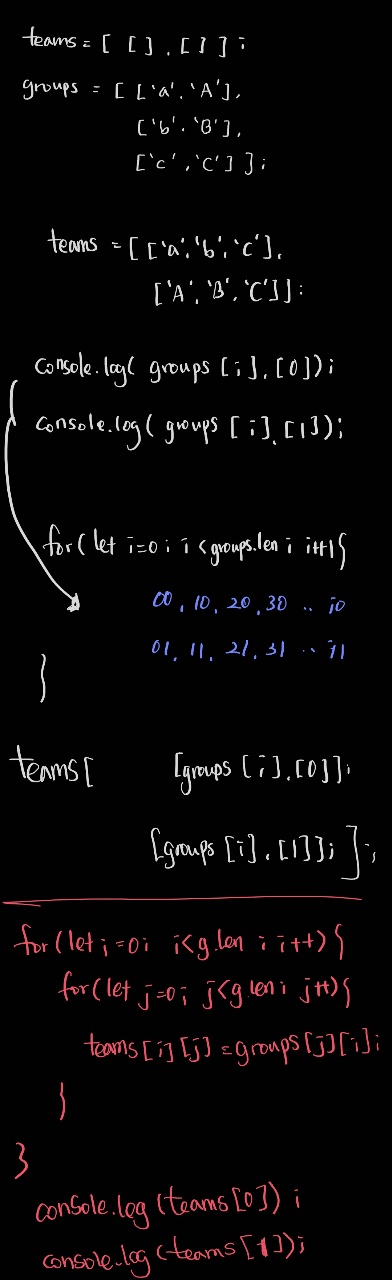 teams = [ [] , [] ] ;
groups = [ ['a', 'A'],
['b', 'B'],
['c', 'C'] ];
teams = [ ['a', 'b', 'c'],
['A', 'B', 'C']];
console.log( groups [i].[0]);
console.log( groups [i].[1]);
for( let i=0; i<groups.len; i++){
00, 10, 20, 30 .. i0
01, 11, 21, 31 .. i1
}
teams[ [groups [i].[0]];
[groups [i].[1]]; ];
for(let i=0; i<g.len ; i++){
for(let j=0; j<g.len; j++){
teams[i][j] =groups[j][i];
}
}
console.log (teams[0]) ;
console.log (teams[1]);